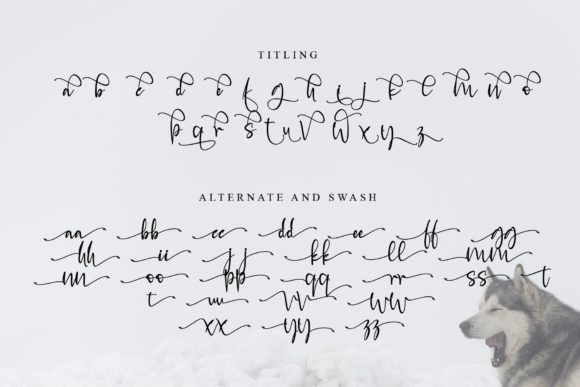 TITLING
a b c d e f g h i j k l m n o
p q r s t u v w x y z
ALTERNATE AND SWASH
aa bb cc dd ee ff gg
hh ii jj kk ll mm
nn oo pp qq rr ss t
t uu vv ww
xx yy zz